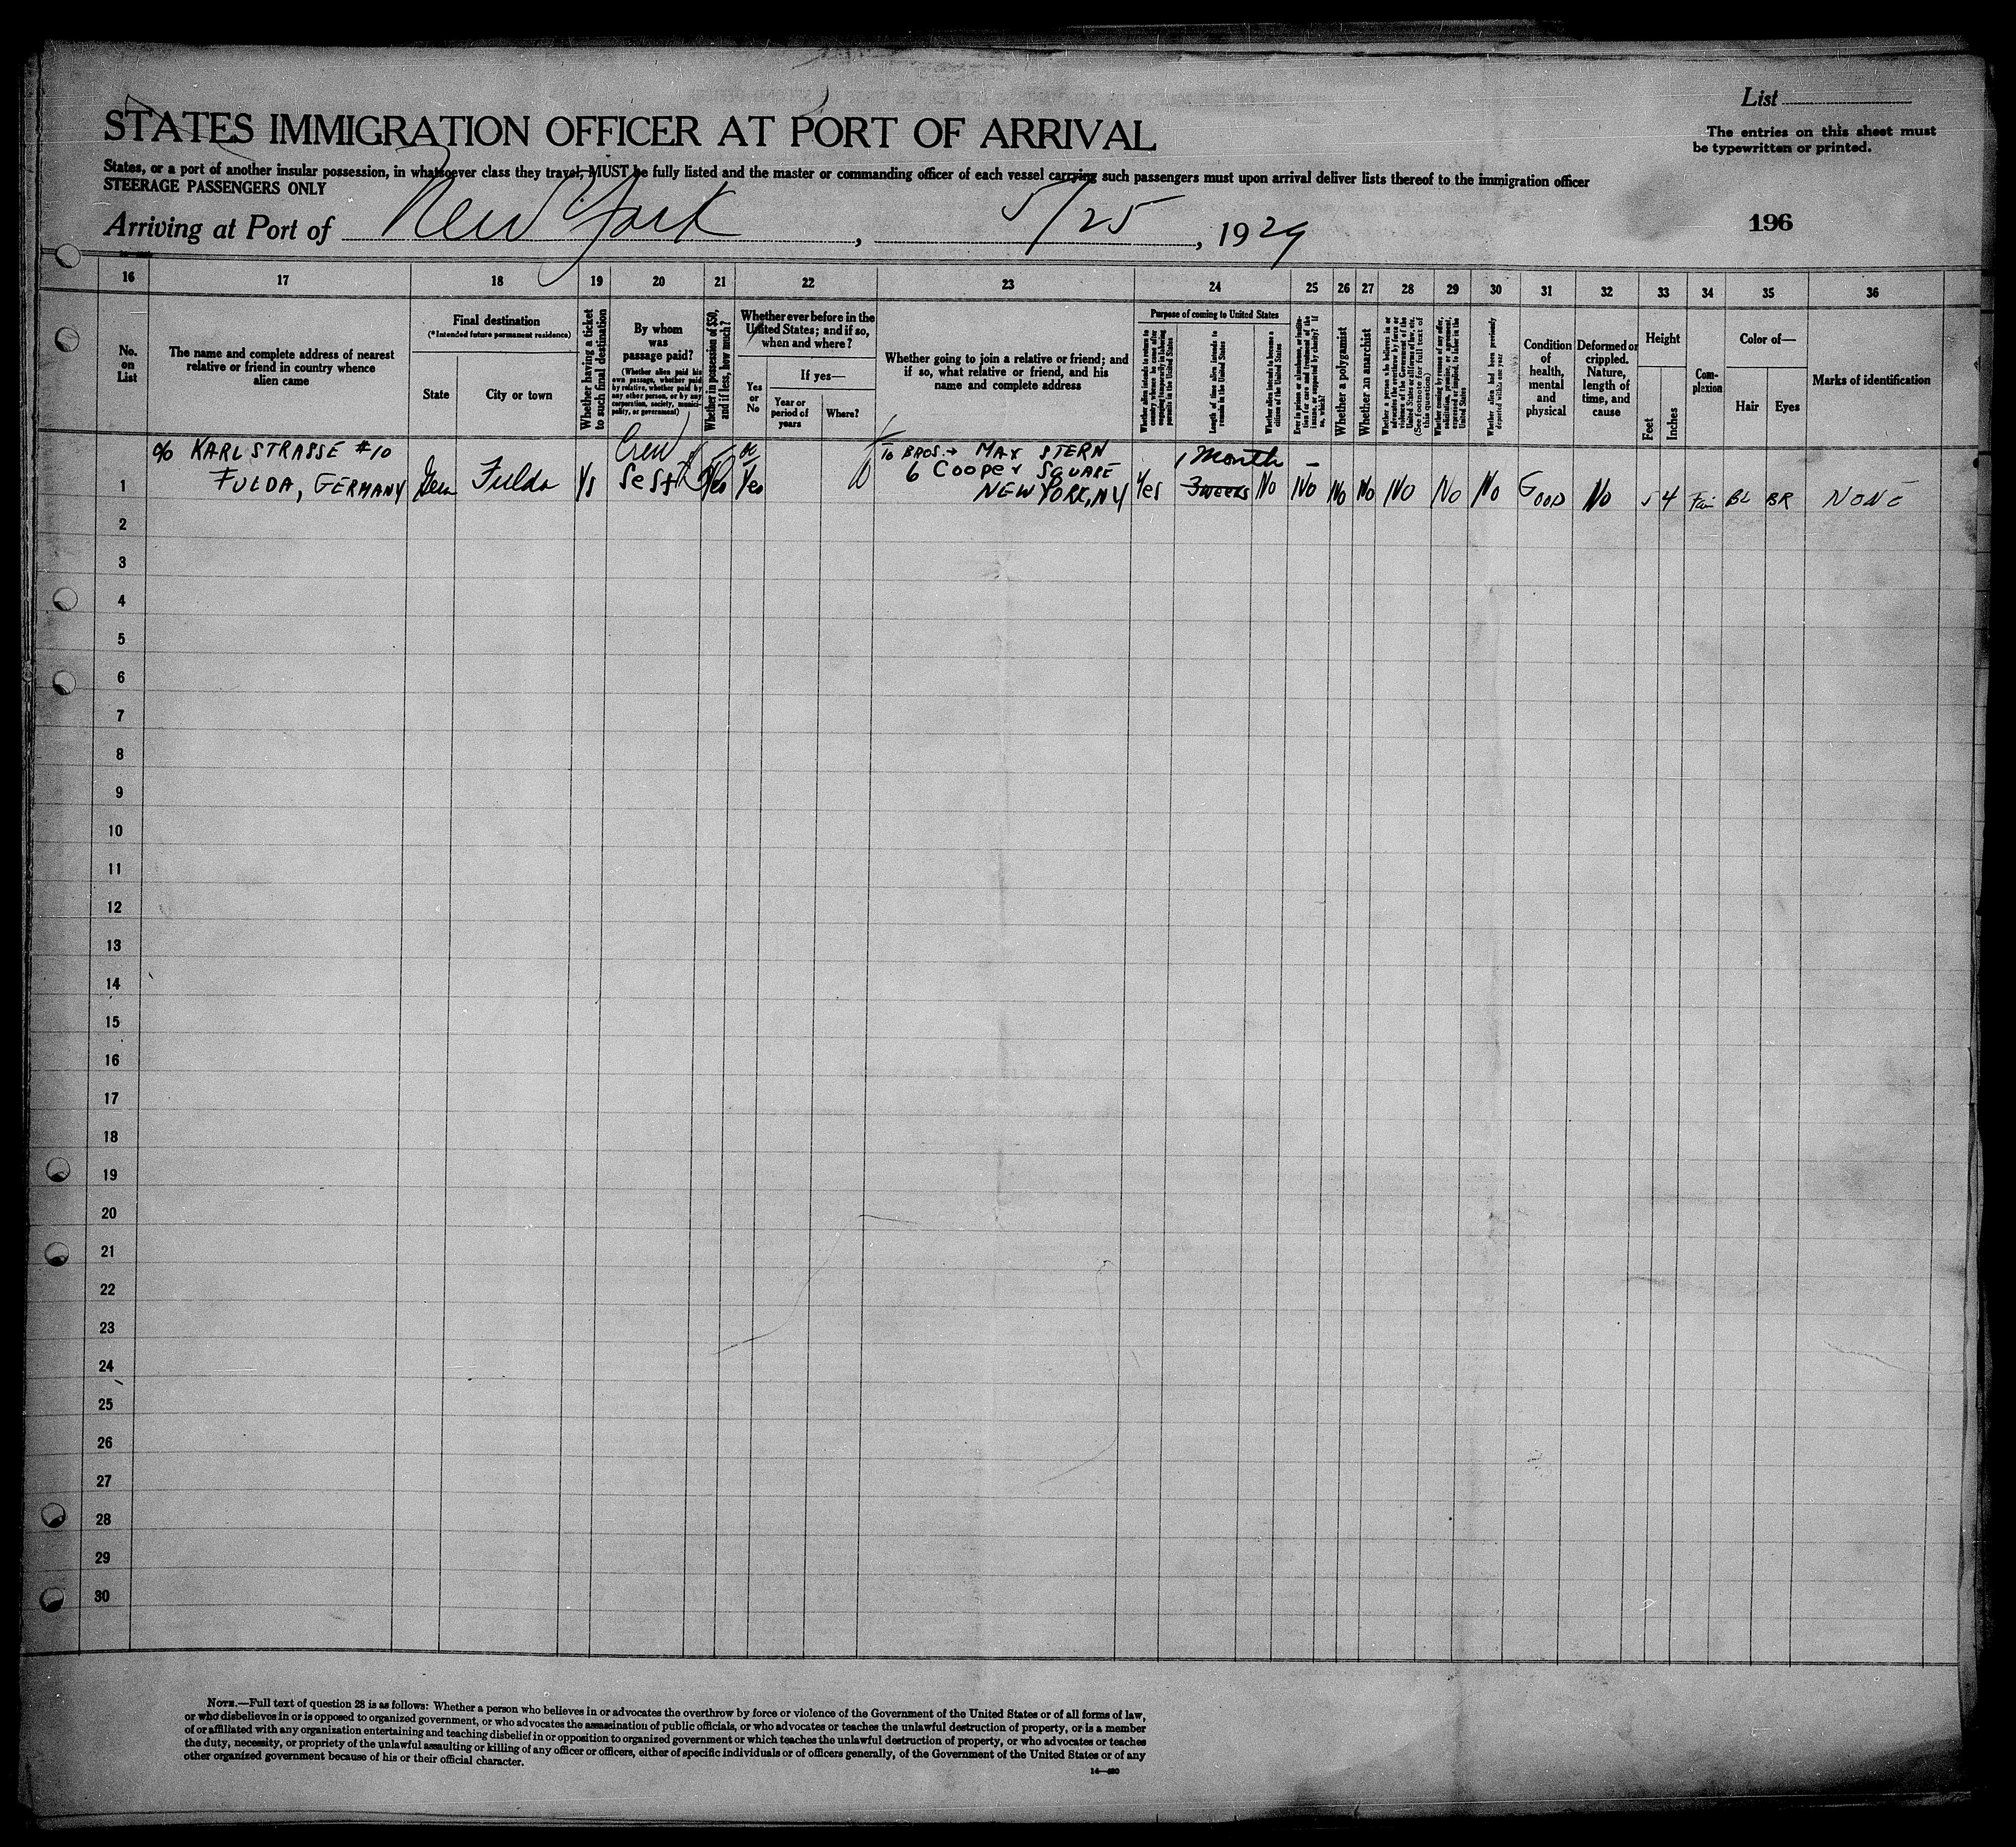 List
STATES IMMIGRATION OFFICER AT PORT OF ARRIVAL
The entries on this sheet must
be typewritten or printed.
States, or a port of another insular possession, in whatsoever class they travel, MUST be fully listed and the master or commanding officer of each vessel carrying such passengers must upon arrival deliver lists thereof to the immigration officer
STEERAGE PASSENGERS ONLY
Arriving at Port of New York, 5/25, 1929
196
16 17 18 19 20 21 22 23 24 25 26 27 28 29 30 31 32 33 34 35 36
No.
on
List
The name and complete address of nearest
relative or friend in country whence
alien came
Final destination
(*Intended future permanent residence)
State
City or town
Whether having a ticket
to such final destination
By whom
was
passage paid?
(Whether alien paid his
own passage, whether paid
by relative, whether paid by
any other person, or by any
corporation, society, munici-
pality, or government)
Whether in possession of $50,
and if less, how much?
Whether ever before in the
United States; and if so,
when and where?
Yes
or
No
If yes—
Year or
period of
years
Where?
Whether going to join a relative or friend; and
if so, what relative or friend, and his
name and complete address
Purpose of coming to United States
Whether alien intends to return to
country whence he came after
engaging temporarily in laboring
pursuits in the United States
Length of time alien intends to
remain in the United States
Whether alien intends to become a
citizen of the United States
Ever in prison or almshouse, or institu-
tion for care and treatment of the
insane, or supported by charity? If
so, which?
Whether a polygamist
Whether an anarchist
Whether a person who believes in or
advocates the overthrow by force or
violence of the Government of the
United States or all forms of law, etc.
(See footnote for full text of
this question)
Whether coming by reason of any offer,
solicitation, promise, or agreement,
expressed or implied, to labor in the
United States
Whether alien had been previously
deported within one year
Condition
of
health,
mental
and
physical
Deformed or
crippled.
Nature,
length of
time, and
cause
Height
Feet
Inches
Com-
plexion
Color of—
Hair
Eyes
Marks of identification
% KARLSTRASSE #10 Crew TO BROS.→ MAX STERN 1 Month
6 Cooper SQUARE
1 FULDA, GERMANY Ger Fulda Ys Self Yes Yes NEW YORK, NY Yes 3 weeks No No No No No No No GOOD No 5 4 Fair BL BR NONE
2
3
4
5
6
7
8
9
10
11
12
13
14
15
16
17
18
19
20
21
22
23
24
25
26
27
28
29
30
NOTE.—Full text of question 28 is as follows: Whether a person who believes in or advocates the overthrow by force or violence of the Government of the United States or of all forms of law,
or who disbelieves in or is opposed to organized government, or who advocates the assassination of public officials, or who advocates or teaches the unlawful destruction of property, or is a member
of or affiliated with any organization entertaining and teaching disbelief in or opposition to organized government or which teaches the unlawful destruction of property, or who advocates or teaches
the duty, necessity, or propriety of the unlawful assaulting or killing of any officer or officers, either of specific individuals or of officers generally, of the Government of the United States or of any
other organized government because of his or their official character.
14—480